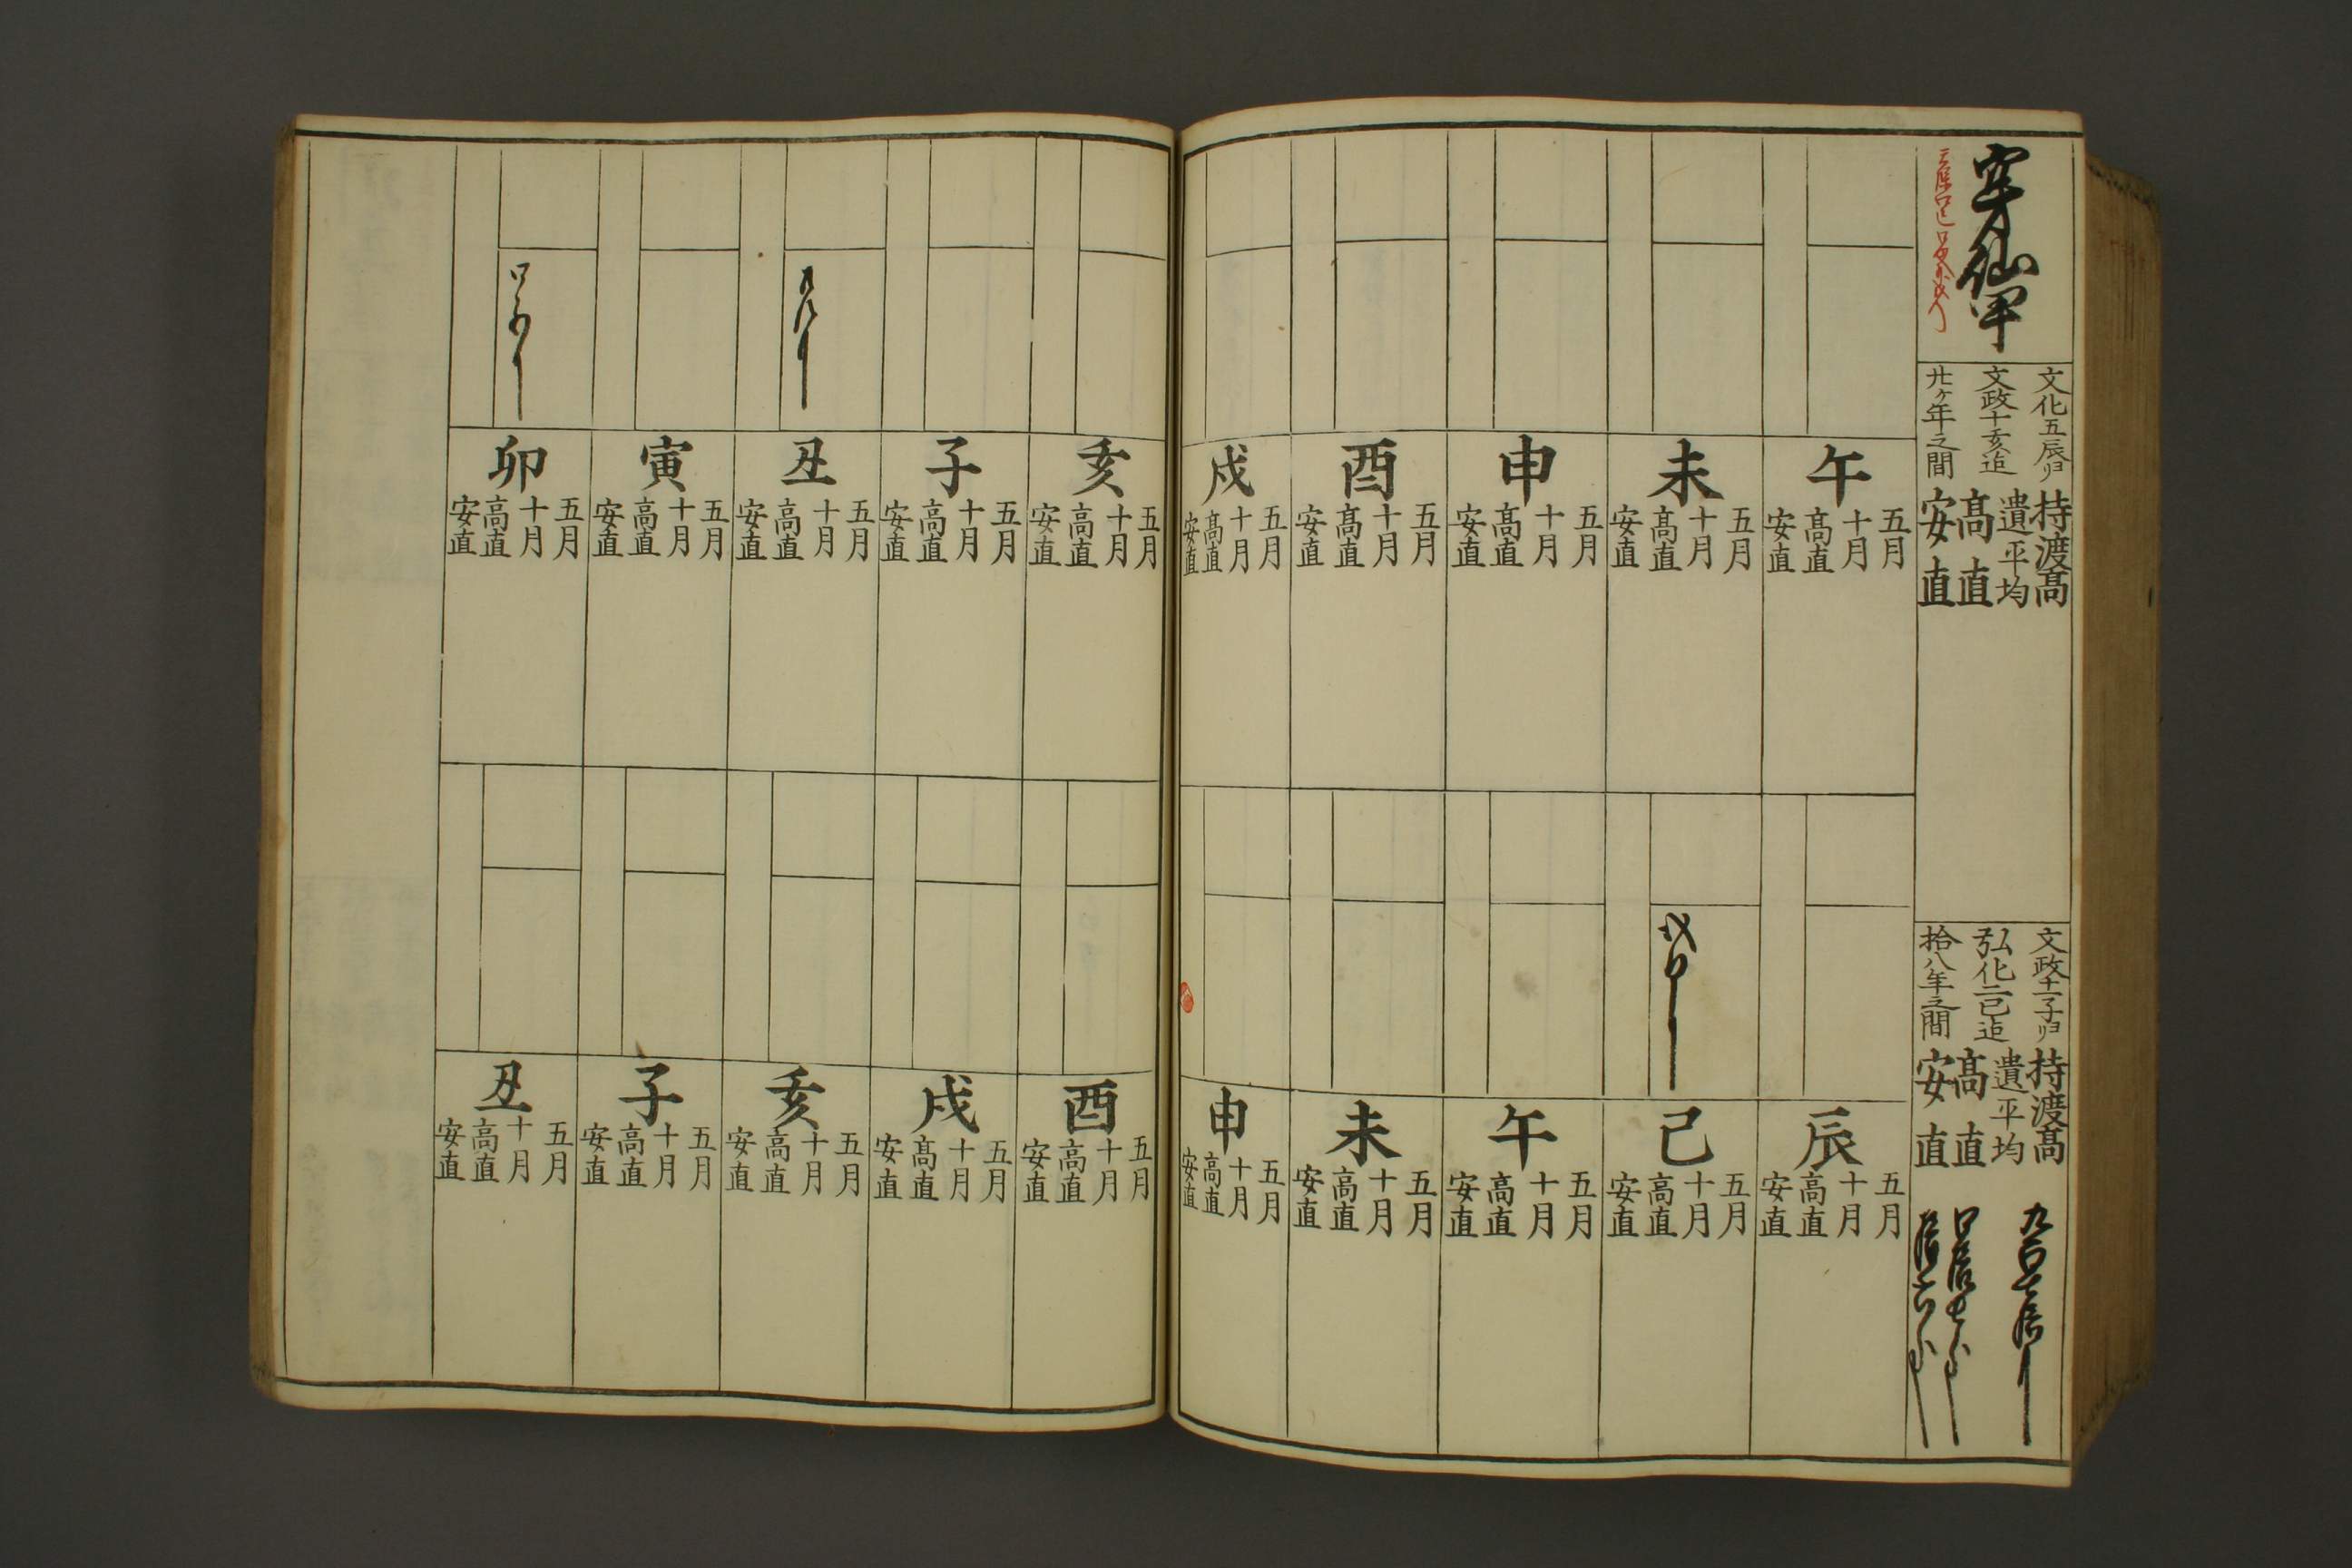 穿山甲
文化五辰ゟ
文政十亥迄
廿ヶ年之間
持渡髙
遣平均
髙直
安直
文政十一子ゟ
弘化二巳迄
拾八年之間
持渡髙
遣平均
髙直
安直
午
五月
十月
髙直
安直
未
五月
十月
髙直
安直
申
五月
十月
髙直
安直
酉
五月
十月
髙直
安直
戌
五月
十月
髙直
安直
辰
五月
十月
高直
安直
巳
五月
十月
高直
安直
午
五月
十月
高直
安直
未
五月
十月
高直
安直
申
五月
十月
高直
安直
亥
五月
十月
高直
安直
子
五月
十月
高直
安直
丑
五月
十月
高直
安直
寅
五月
十月
高直
安直
卯
五月
十月
高直
安直
酉
五月
十月
高直
安直
戌
五月
十月
髙直
安直
亥
五月
十月
高直
安直
子
五月
十月
高直
安直
丑
五月
十月
高直
安直